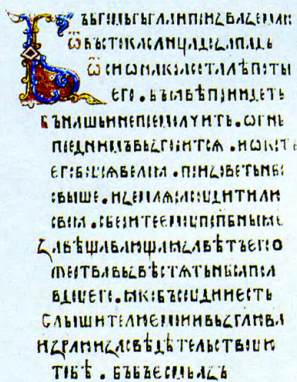 Бъ бгомъ гь гла и призва землю
ѿ въстока слнца до запада
ѿ сиѡна красота лѣпоты
его . бъ ꙗвѣ приидеть
бъ нашь и не премолчить . огнь
пред нимъ възгоритсѧ . и ѡкрⷭтъ
его бурѧ велика . призоветь нбо
свыше . и землю расудити люди
своꙗ . сберѣте ему прпдбныꙗ
завѣщавающаꙗ завѣтъ его ѡ
жертвахъ възвѣстѧть нбса пра
вду его . ꙗко бъ судии есть
Слышите людие мои и възглю ва
израилю и засвѣдѣтельствую
тобѣ . бъ бъ есмь азъ